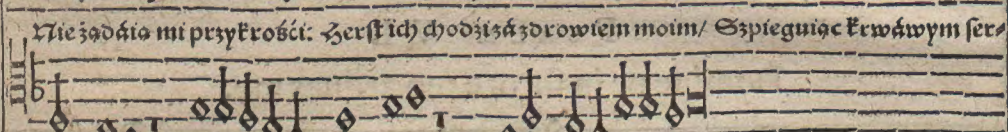 Nie żądáią mi przykrośći: Herſt ich chodźi zá zdrowiem moim/ Szpieguiąc krwáwym ſer⸗